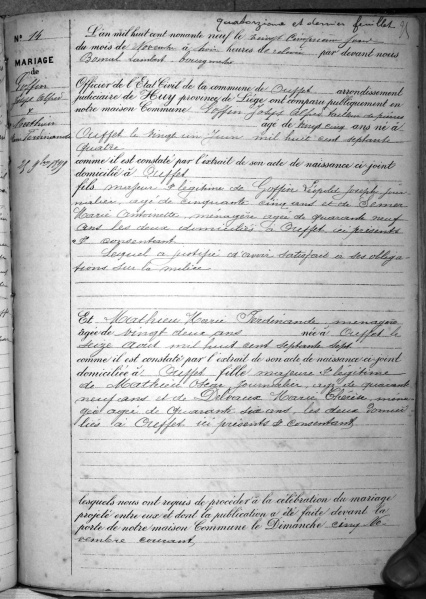 quatorzième et dernier feuillet
N° 14
MARIAGE
de
Goffin
Joseph Alfred
&
Mathieu
Marie Ferdinande
25 9bre 1899
L'an mil huit cent nonante neuf le vingt cinquième jour
du mois de novembre à trois heures de relevée par devant nous
bourgmestre
Officier de l'État Civil de la commune de Ouffet arrondissement
judiciaire de Huy province de Liége ont comparu publiquement en
notre maison Commune Goffin Joseph Alfred tailleur de pierres
âgé de vingt cinq ans né à
Ouffet le vingt un Juin mil huit cent septante
quatre
comme il est constaté par l'extrait de son acte de naissance ci-joint
domicilié à Ouffet
fils majeur & légitime de Goffin Léopold Joseph, jour-
nalier, agé de cinquante cinq ans et de
Marie Antoinette, ménagère agée de quarante neuf
ans les deux domiciliés à Ouffet ici présents
& consentant
Lequel a justifié d'avoir satisfait à ses obliga-
tions sur la milice
Et Mathieu Marie Ferdinande, ménagère
âgée de vingt deux ans née à Ouffet le
seize Août mil huit cent septante sept
comme il est constaté par l'extrait de son acte de naissance ci-joint
domiciliée à Ouffet fille majeure & légitime
de Mathieu journalier, agé de quarante
neuf ans et de Debroux Marie Thérèse, ména-
gère agée de quarante six ans, les deux domici-
liés à Ouffet ici présents & consentant,
lesquels nous ont requis de procéder à la célébration du mariage
projeté entre eux et dont la publication a été faite devant la
porte de notre maison Commune le Dimanche cinq No-
vembre courant,